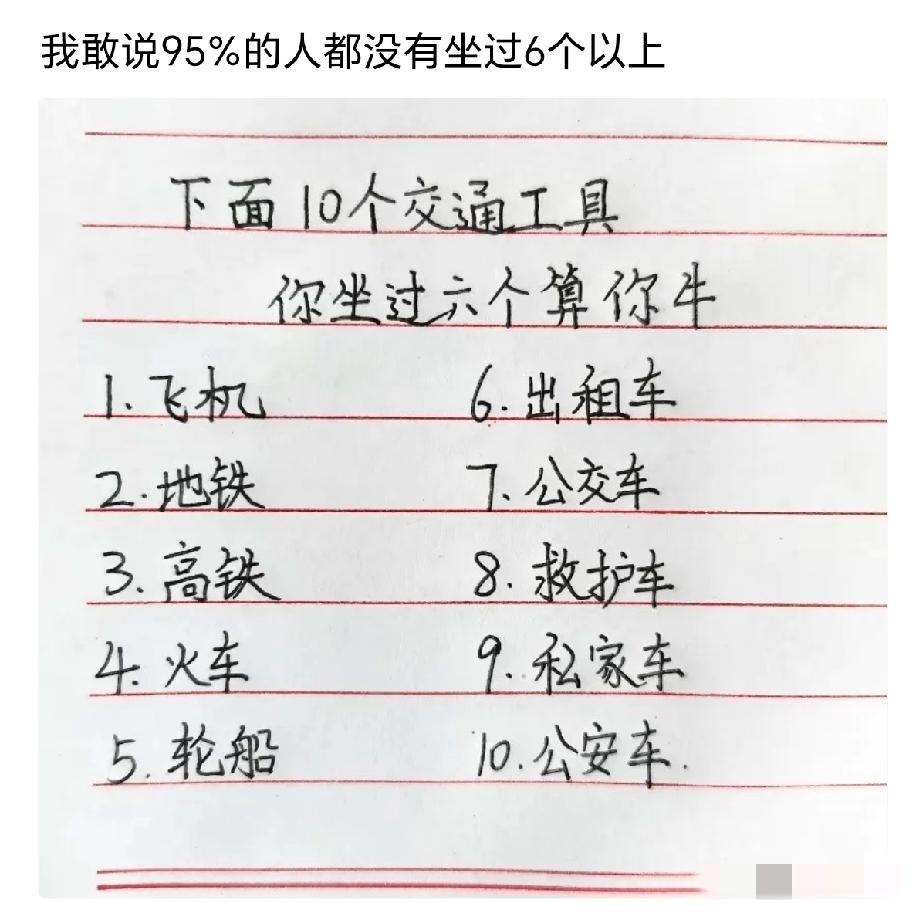 我敢说95%的人都没有坐过6个以上
下面10个交通工具
你坐过六个算你牛
1.飞机 6.出租车
2.地铁 7.公交车
3.高铁 8.救护车
4.火车 9.私家车
5.轮船 10.公安车.